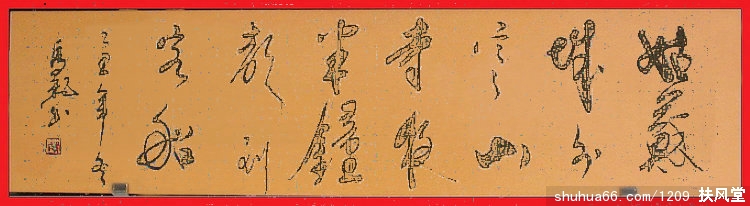 姑蘇
城外
寒山
寺夜
半鐘
聲到
客船
年冬
书
shuhua66.com/1209 扶风堂